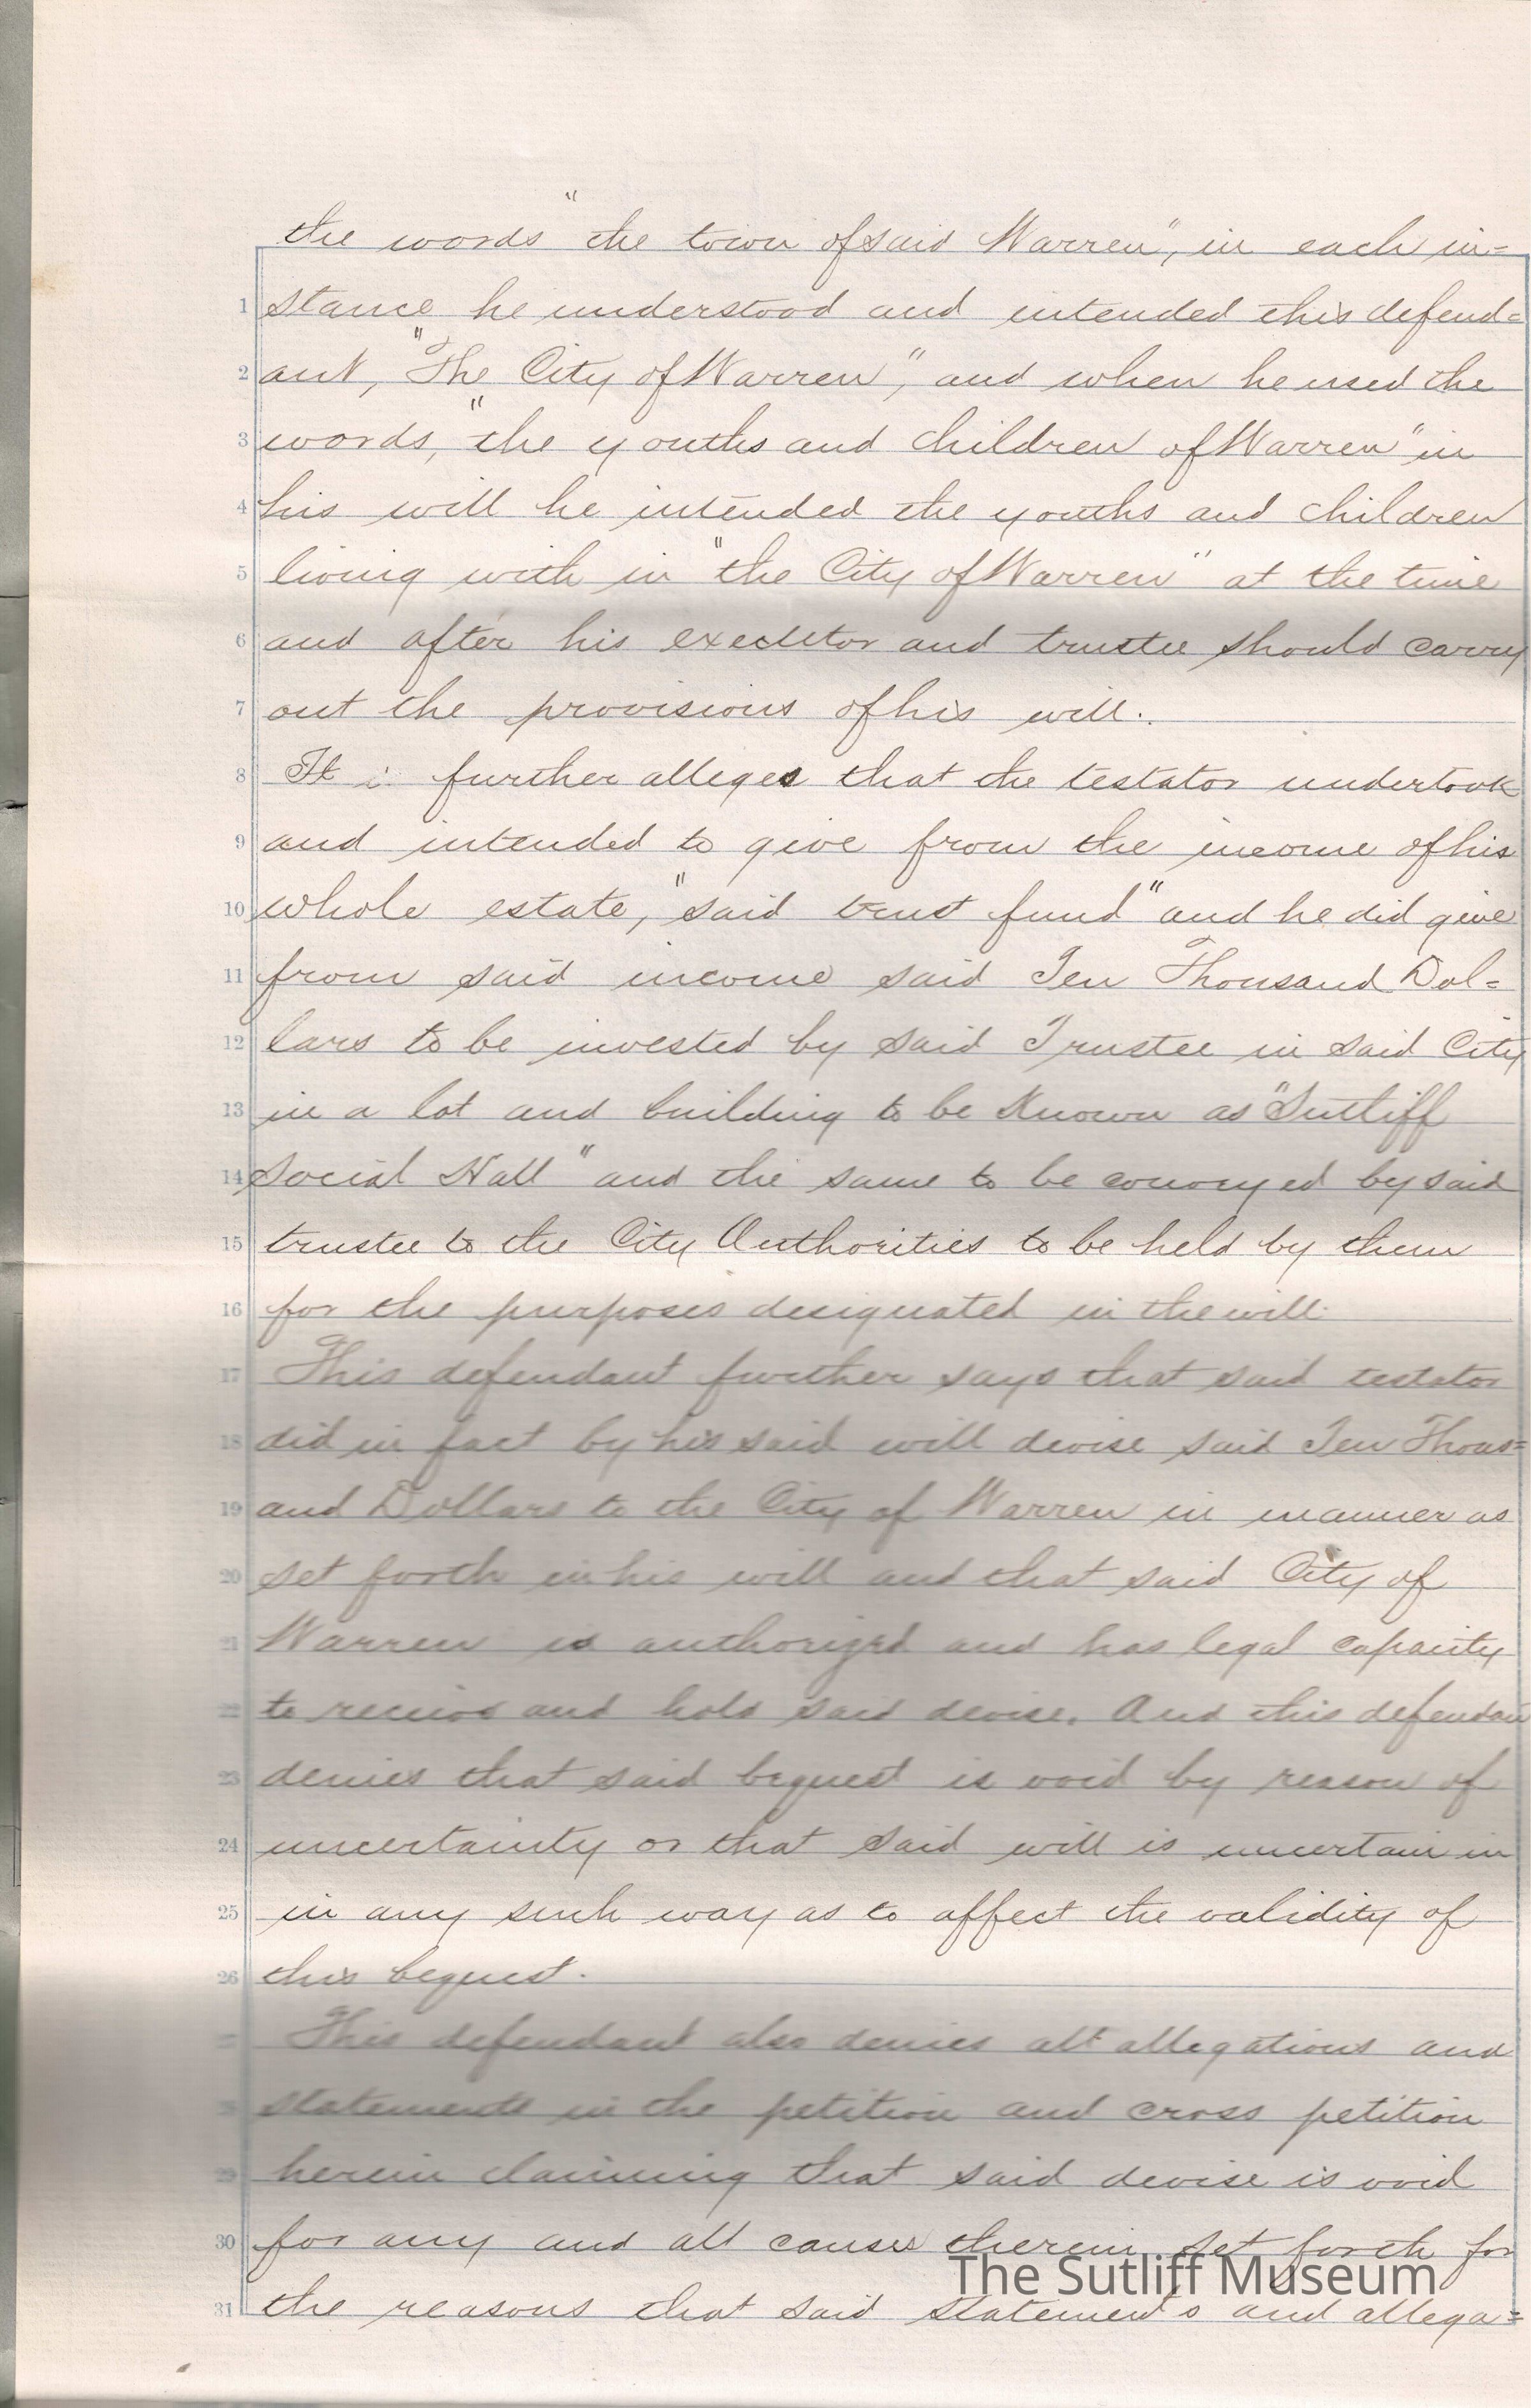 the words "the town of said Warren", in each in=
1 stance he understood and intended this defend=
2 ant, "The City of Warren", and when he used the
3 words, "the youths and children of Warren" in
4 his will he intended the youths and children
5 living with in "the City of Warren" at the time
6 and after his executor and trustee should carry
7 out the provisions of his will.
8 It further alleges that the testator undertook
9 and intended to give from the income of his
10 whole estate, "said trust fund" and he did give
11 from said income said Ten Thousand Dol=
12 lars to be invested by said Trustee in said City
13 in a lot and building to be Known as "Sutliff
14 Social Hall" and the same to be conveyed by said
15 trustee to the City Authorities to be held by them
16 for the purposes designated in the will.
17 This defendant further says that said testator
18 did in fact by his said will devise said Ten Thous=
19 and Dollars to the City of Warren in manner as
20 set forth in his will and that said City of
21 Warren is authorized and has legal capacity
22 to receive and hold said devise. And this defendan
23 denies that said bequest is void by reason of
24 uncertainty or that said will is uncertain in
25 in any such way as to affect the validity of
26 this bequest.
This defendant also denies all allegations and
statements in the petition and cross petition
29 herein claiming that said devise is void
30 for any and all causes therein set forth for
31 the reasons that said statements and allega=
The Sutliff Museum